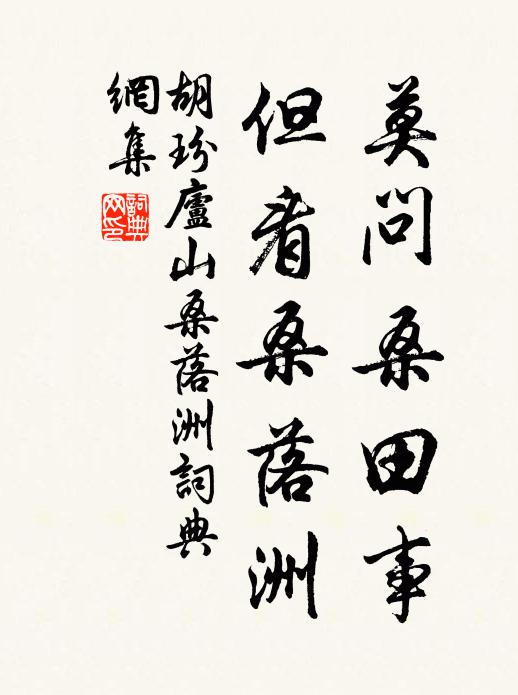 莫問桑田事
但看桑落洲
胡玢廬山桑落洲詞典
網集
詞典
网印